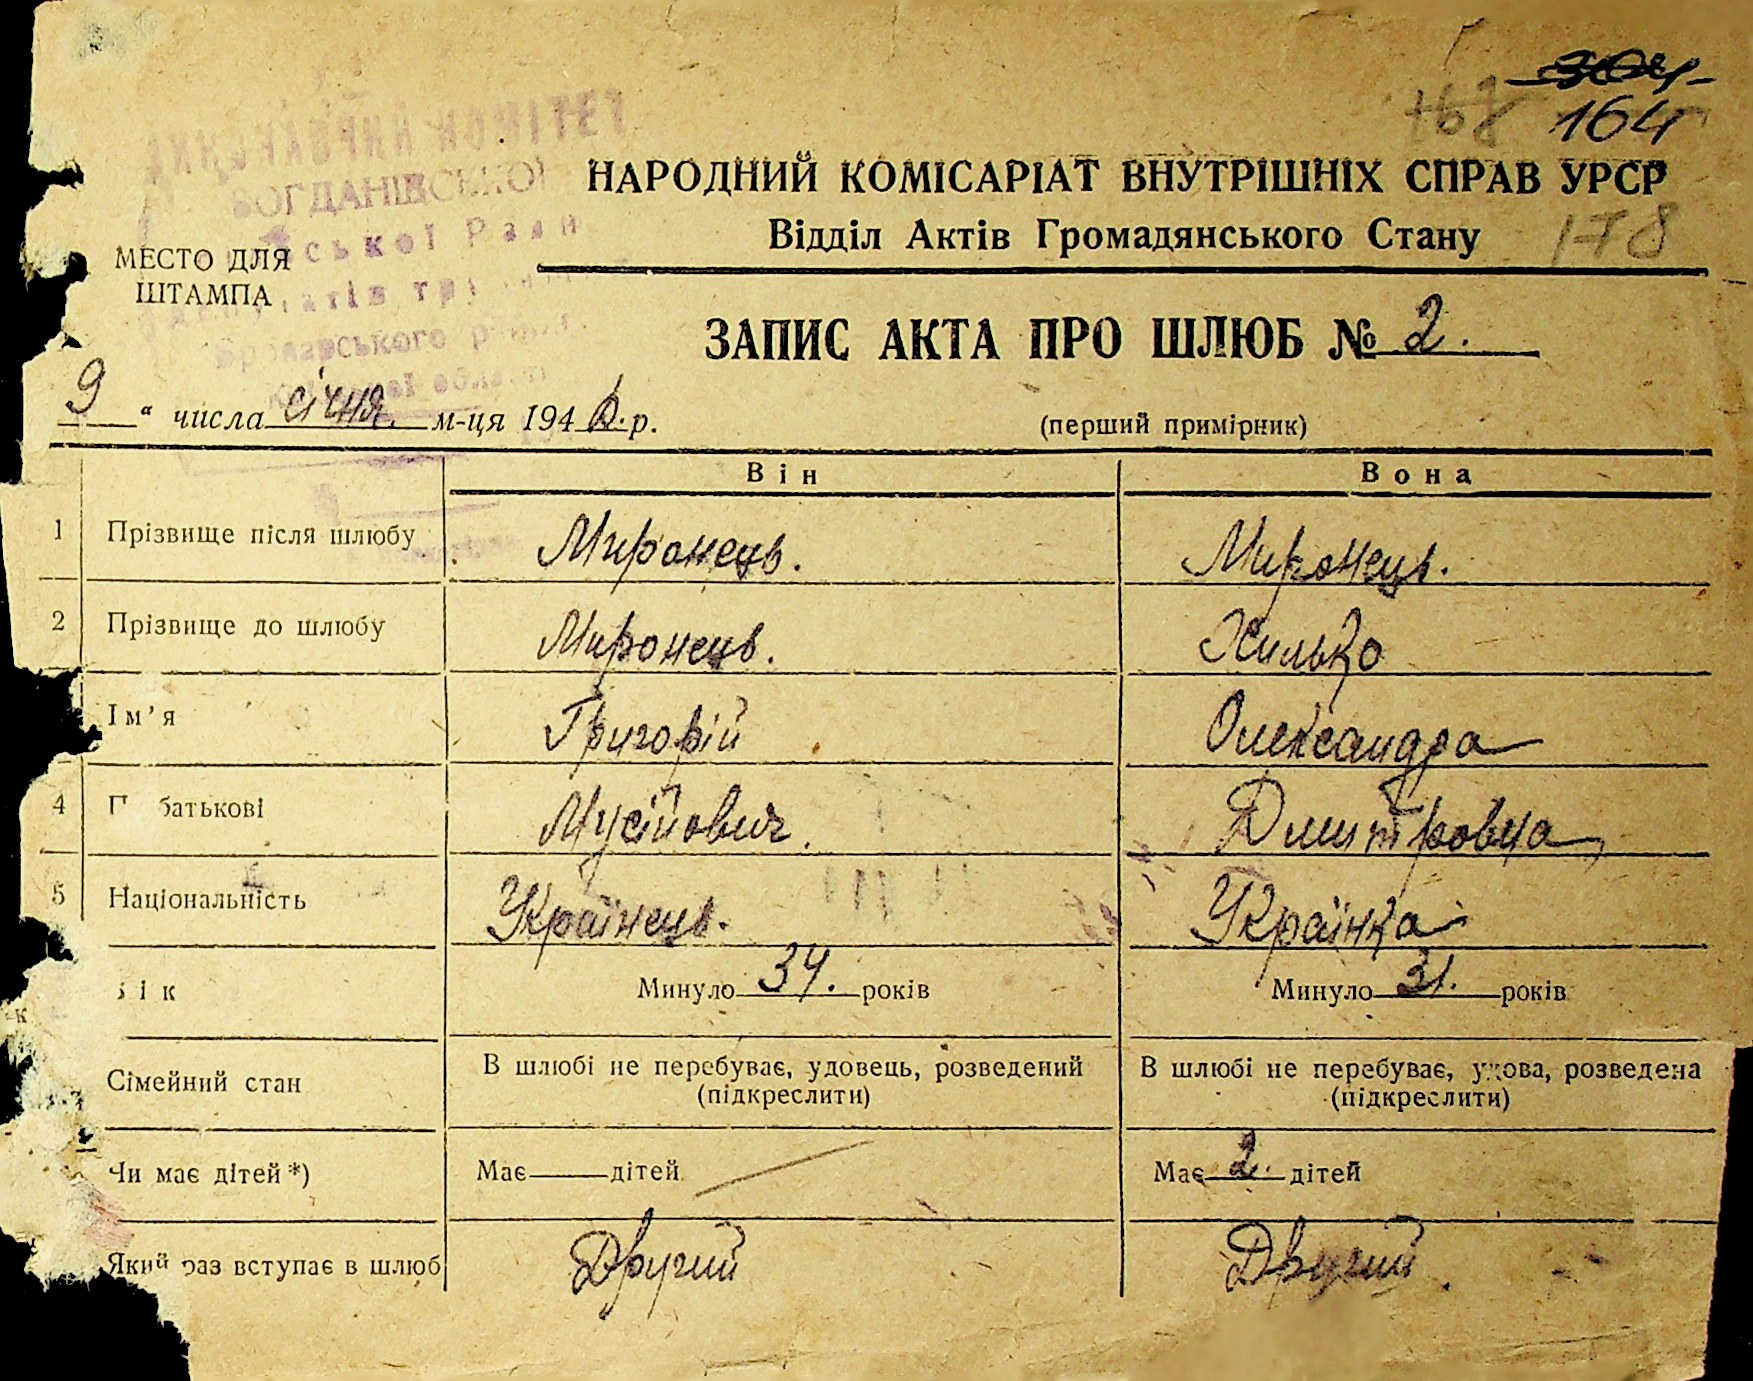 304
168 164
ВИКОНАВЧИЙ КОМІТЕТ
БОГДАНІВСЬКОЇ
НАРОДНИЙ КОМІСАРІАТ ВНУТРІШНІХ СПРАВ УРСР
ської Ради
Відділ Актів Громадянського Стану 178
МЕСТО ДЛЯ
ШТАМПА
ЗАПИС АКТА ПРО ШЛЮБ № 2.
9 " числа січня м-ця 194 р.
(перший примірник)
Він Вона
1 Прізвище після шлюбу Миронець. Миронець.
2 Прізвище до шлюбу Миронець. Хилько
Ім'я Григорій Олександра
4 П батькові Мусійович. Дмитровна
5 Національність Українець. Українка
ік Минуло 34. років Минуло 31. років
Сімейний стан В шлюбі не перебуває, удовець, розведений В шлюбі не перебуває, удова, розведена
(підкреслити) (підкреслити)
Чи має дітей*) Має дітей Має 2. дітей
Який раз вступає в шлюб Другий Другий.